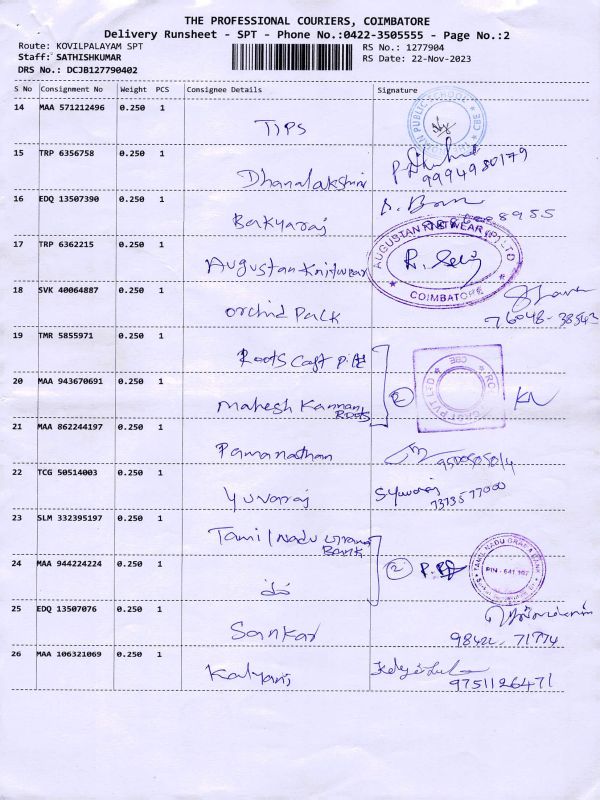 THE PROFESSIONAL COURIERS, COIMBATORE
Delivery Runsheet - SPT - Phone No.:0422-3505555 - Page No.:2
Route: KOVILPALAYAM SPT
Staff: SATHISHKUMAR
DRS No.: DCJB127790402
RS No.: 1277904
RS Date: 22-Nov-2023
S No Consignment No Weight PCS Consignee Details Signature
14 MAA 571212496 0.250 1 TIPS
PUBLIC SCHOOL CBE
15 TRP 6356758 0.250 1 Dhanalakshmi
9994980179
16 EDQ 13507390 0.250 1 Bakyaraj
17 TRP 6362215 0.250 1 Augustan Knitwear
AUGUSTAN KNITWEAR (P) LTD
COIMBATORE
18 SVK 40064887 0.250 1 Orchid Park
76048-38543
19 TMR 5855971 0.250 1 Roots Cast P.Ltd
20 MAA 943670691 0.250 1 Mahesh Kannan Roots
2 KN
21 MAA 862244197 0.250 1 Pamanathan
22 TCG 50514003 0.250 1 Yuvaraj
S Yuvaraj
7373577000
23 SLM 332395197 0.250 1 Tamil Nadu Grama Bank
24 MAA 944224224 0.250 1
2
TAMIL NADU GRAMA BANK
PIN - 641 107
25 EDQ 13507076 0.250 1 Sankar
98422 71774
26 MAA 106321069 0.250 1 Kalyani
9751126471